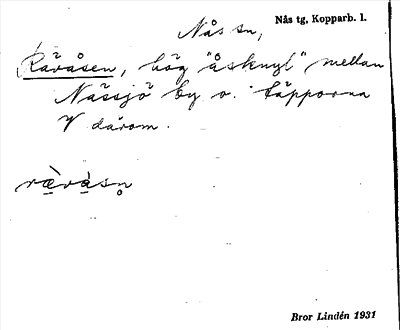 Nås sn,
Nås tg, Kopparb. l.
Rävåsen, hög "åsknyl" mellan
Nässjö by o. täpporna
V därom.
ræ̀vàsn̥
Bror Lindén 1931